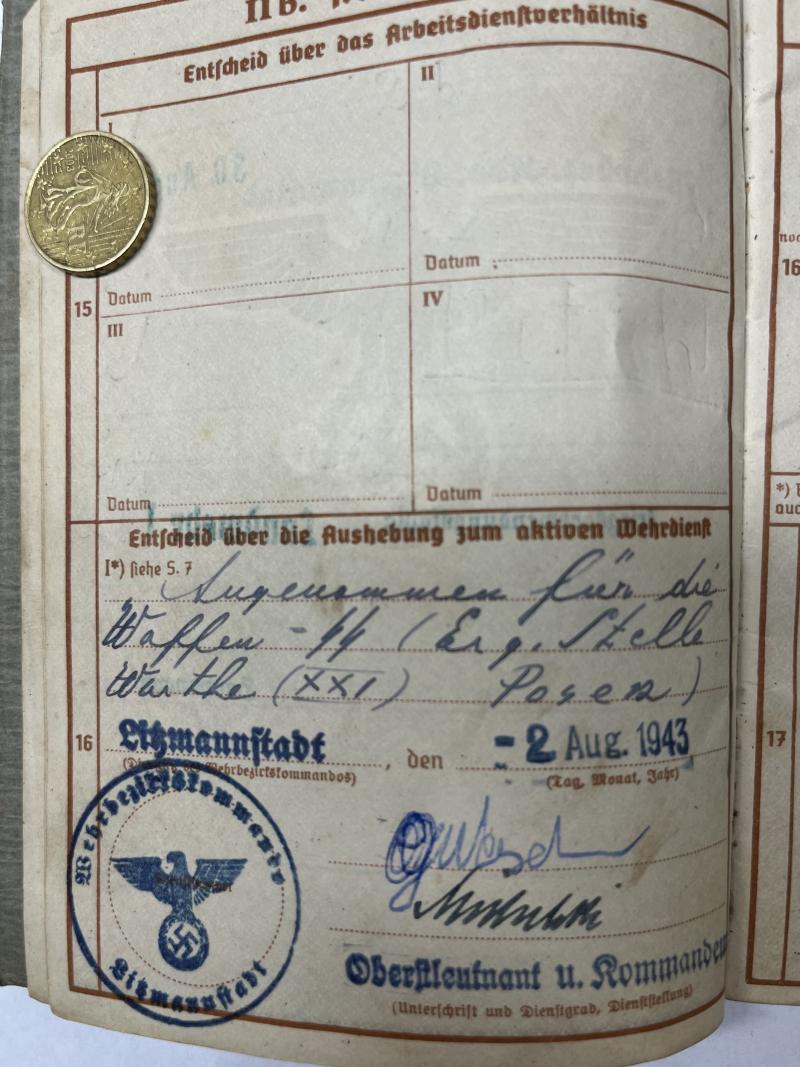 II B.
Entscheid über das Arbeitsdienstverhältnis
I
II
Datum
Datum
15
III
IV
Datum
Datum
Entscheid über die Aushebung zum aktiven Wehrdienst
I*) siehe S. 7
Angenommen für die
Waffen-SS (Erg. Stelle
Warthe (XXI) Posen)
16
Litzmannstadt, den -2 Aug. 1943
Wehrbezirkskommandos)
(Tag, Monat, Jahr)
Wehrbezirkskommando
Litzmannstadt
Oberstleutnant u. Kommandeur
(Unterschrift und Dienstgrad, Dienststellung)
16
*)
auc
17